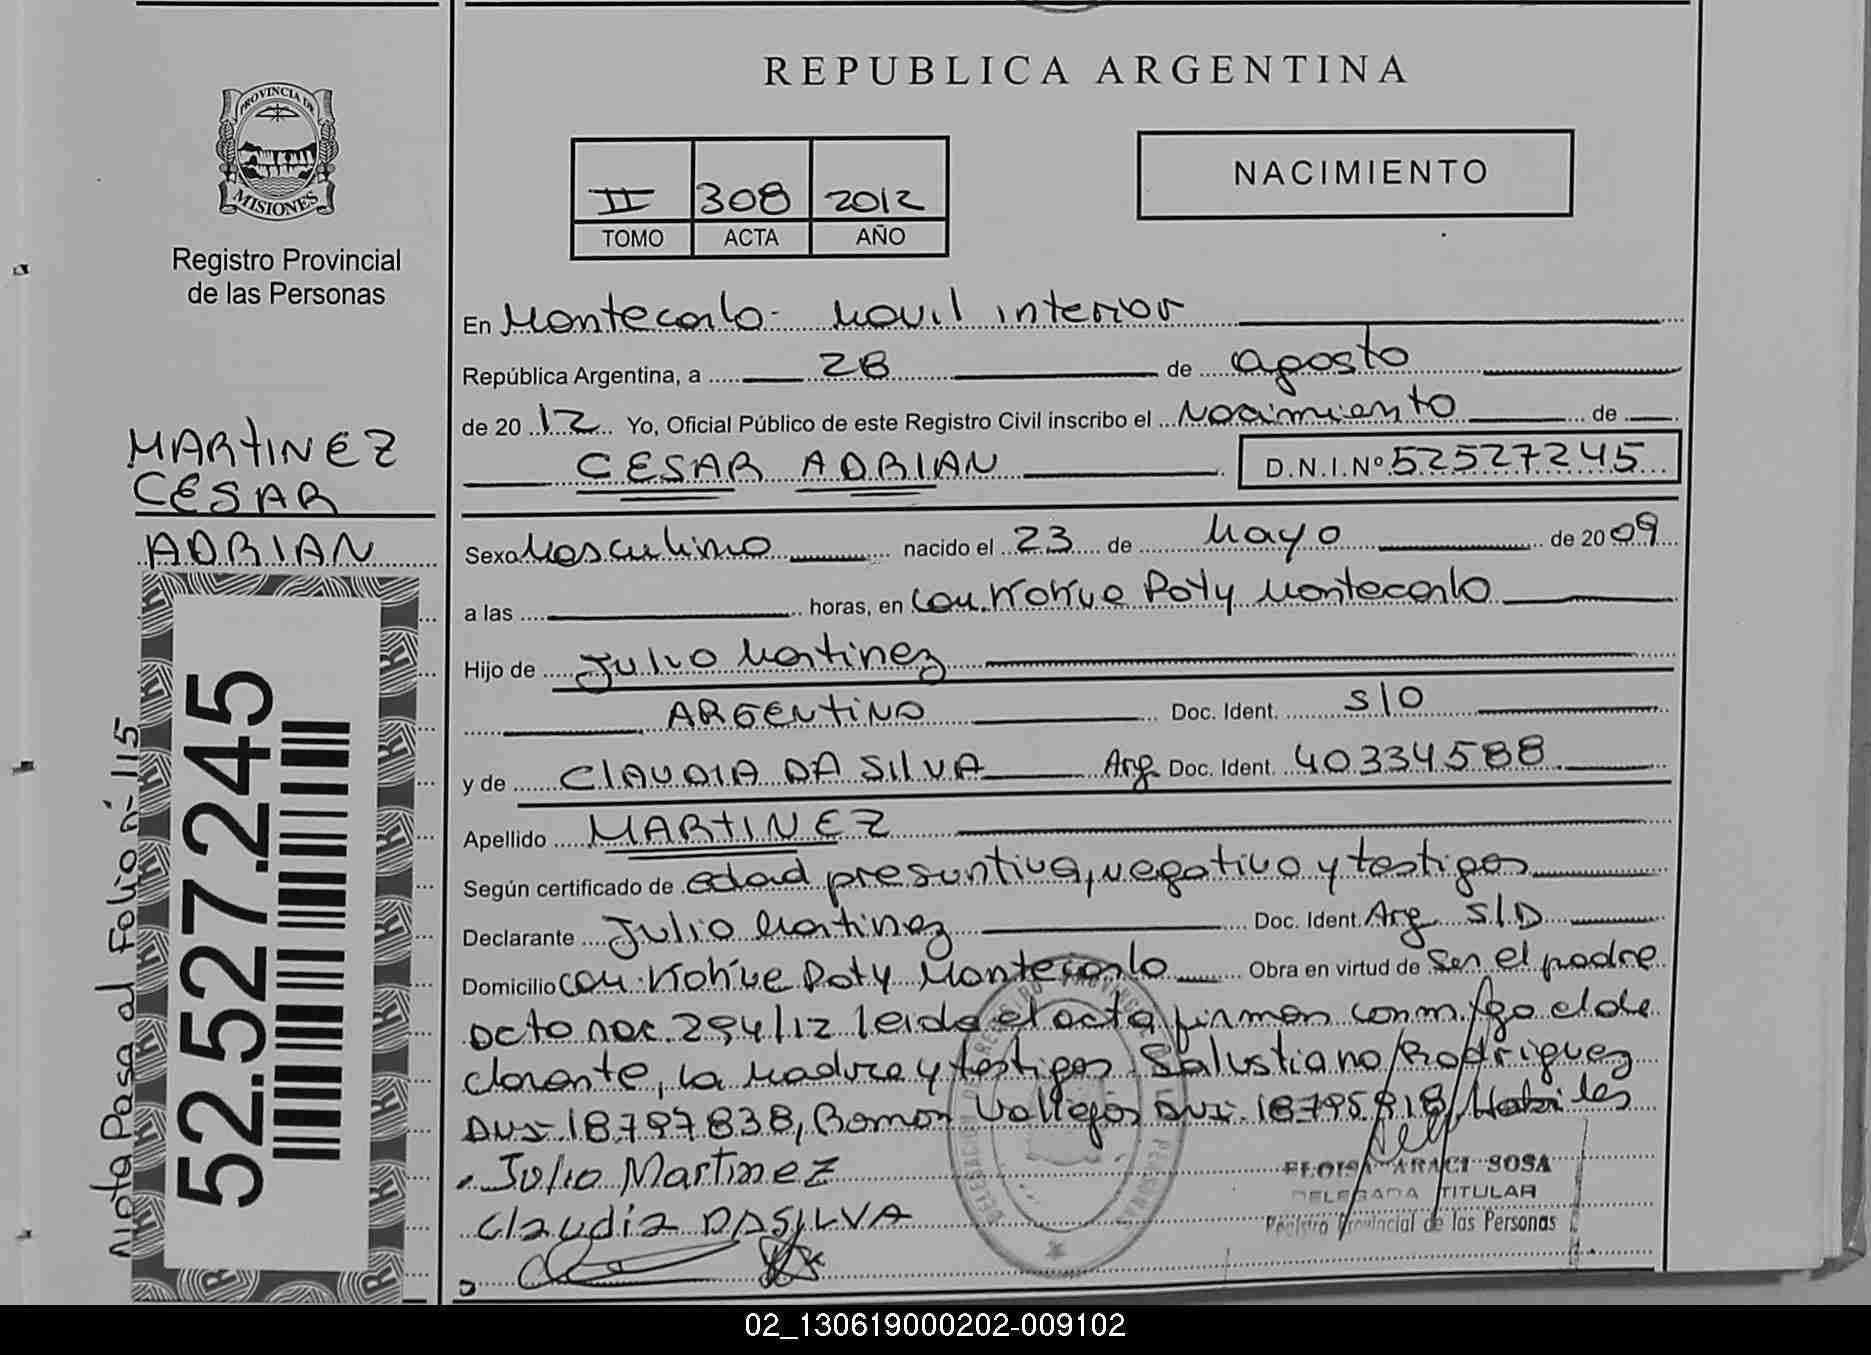 REPUBLICA ARGENTINA
PROVINCIA DE
MISIONES
Registro Provincial
de las Personas
II 308 2012
TOMO ACTA AÑO
NACIMIENTO
En Montecarlo - Movil interior
República Argentina, a 28 de agosto
de 2012 Yo, Oficial Público de este Registro Civil inscribo el Nacimiento de
CESAR ADRIAN D.N.I.Nº 52527245
Sexo Masculino nacido el 23 de Mayo de 2009
a las horas, en Com. Poty Montecarlo
Hijo de Julio Martinez
ARGENTINO Doc. Ident. S/D
y de CLAUDIA DA SILVA Arg. Doc. Ident. 40334588
Apellido MARTINEZ
Según certificado de edad presuntiva, negativo y testigos
Declarante Julio Martinez Doc. Ident. Arg. S/D
Domicilio Com. Poty Montecarlo Obra en virtud de Ser el padre
294/12 leida el acta firman conmigo el de
clarante, la Madre y testigos Salustiano Rodriguez
DNI 18.797838, Ramon Vallejos DNI. 18795918 Habiles
Julio Martinez
Claudia DASILVA
ELOISA ARACI SOSA
DELEGADA TITULAR
Registro Provincial de las Personas
MARTINEZ
CESAR
ADRIAN
52.527.245
Nota Pasa al Folio nº 115
02_130619000202-009102